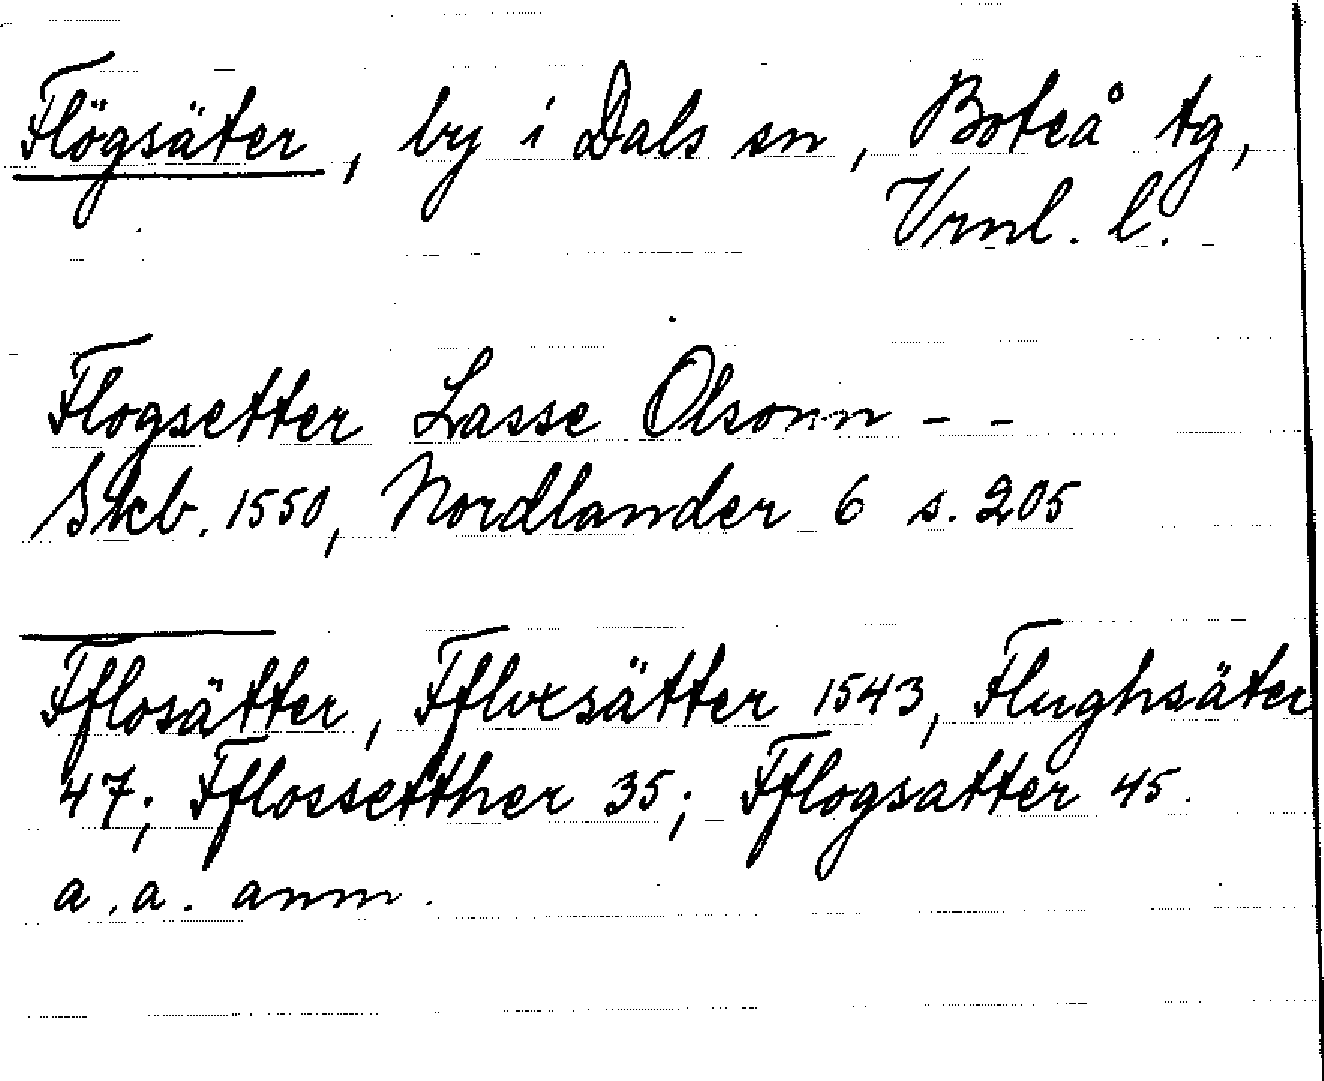 Flögsäter, by i Dals sn, Boteå tg,
Vrnl. l.
Flogsetter Lasse Olsonn - -
Skb. 1550, Nordlander 6 s. 205
Fflosätter, Fflvxsätter 1543, Flughsäter
47; Fflossetther 35; Fflogsatter 45.
a. a. anm.